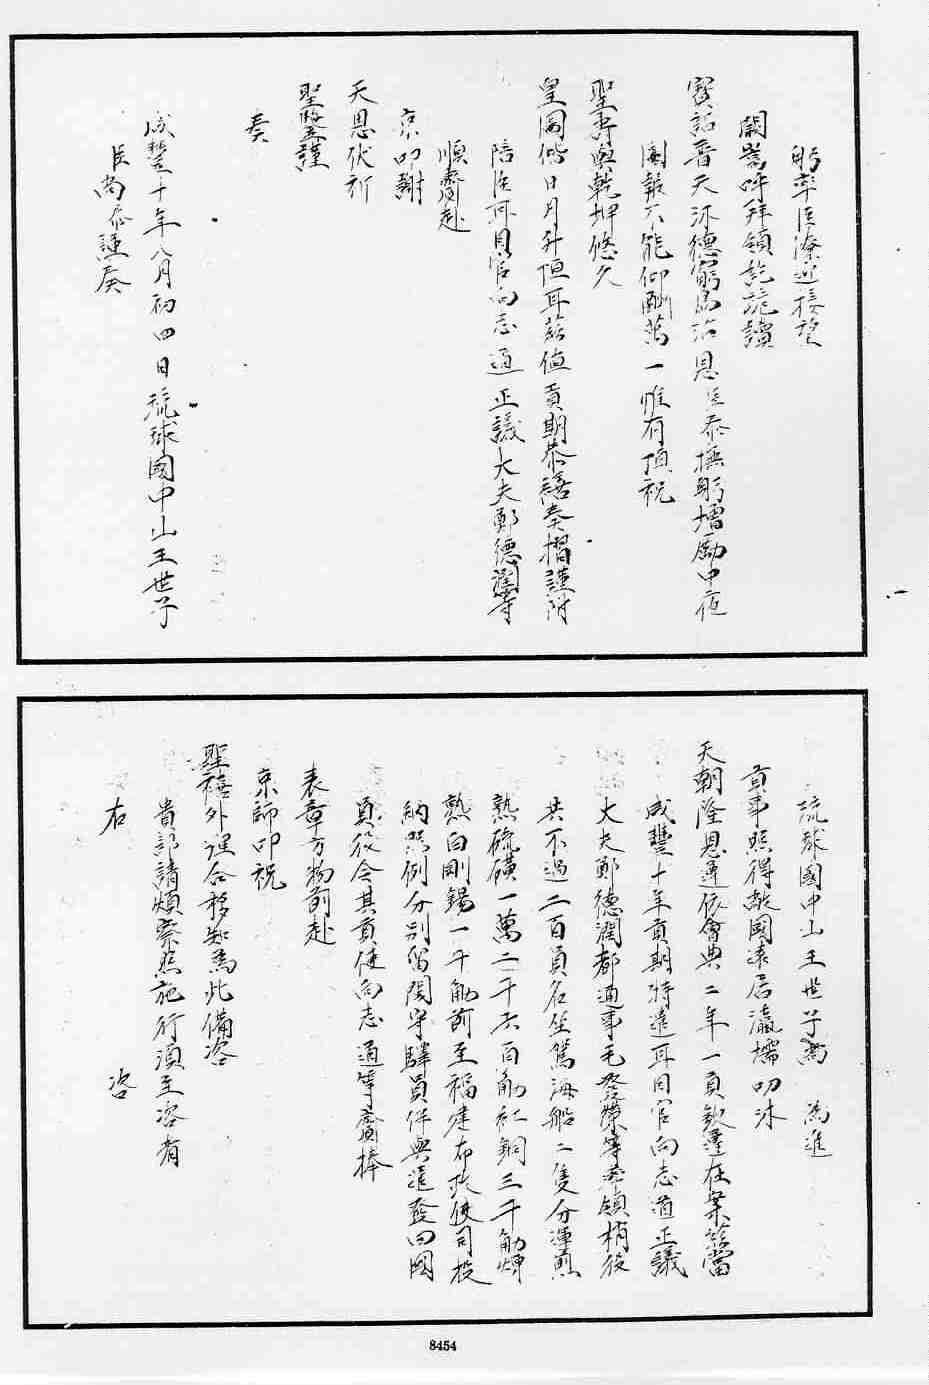 躬率臣僚迎接望
闕嵩呼拜領訖跪讀
寶誥普天沐德窮島沾恩臣泰撫躬增勵中夜
圖報不能仰酬萬一惟有頂祝
聖壽與乾坤悠久
皇圖偕日月升恒耳茲值貢期恭繕奏摺謹附
陪臣耳目官向志道正議大夫鄭德潤等
順齎赴
京叩謝
天恩伏祈
聖鑒謹
奏
咸豐十年八月初四日琉球國中山王世子
臣尚泰謹奏
琉球國中山王世子尚 為進
貢事照得敝國遠居瀛壖叨沐
天朝隆恩遵依會典二年一貢欽遵在案茲當
咸豐十年貢期特遣耳目官向志道正議
大夫鄭德潤都通事毛發榮等率領梢役
共不過二百員名坐駕海船二隻分運煎
熟硫磺一萬二千六百觔紅銅三千觔煉
熟白剛錫一千觔前至福建布政使司投
納照例分別留閩守驛員伴與遣發回國
員役令其貢使向志道等齎捧
表章方物前赴
京師叩祝
聖禧外理合移知為此備咨
貴部請煩察照施行須至咨者
右 咨
8454